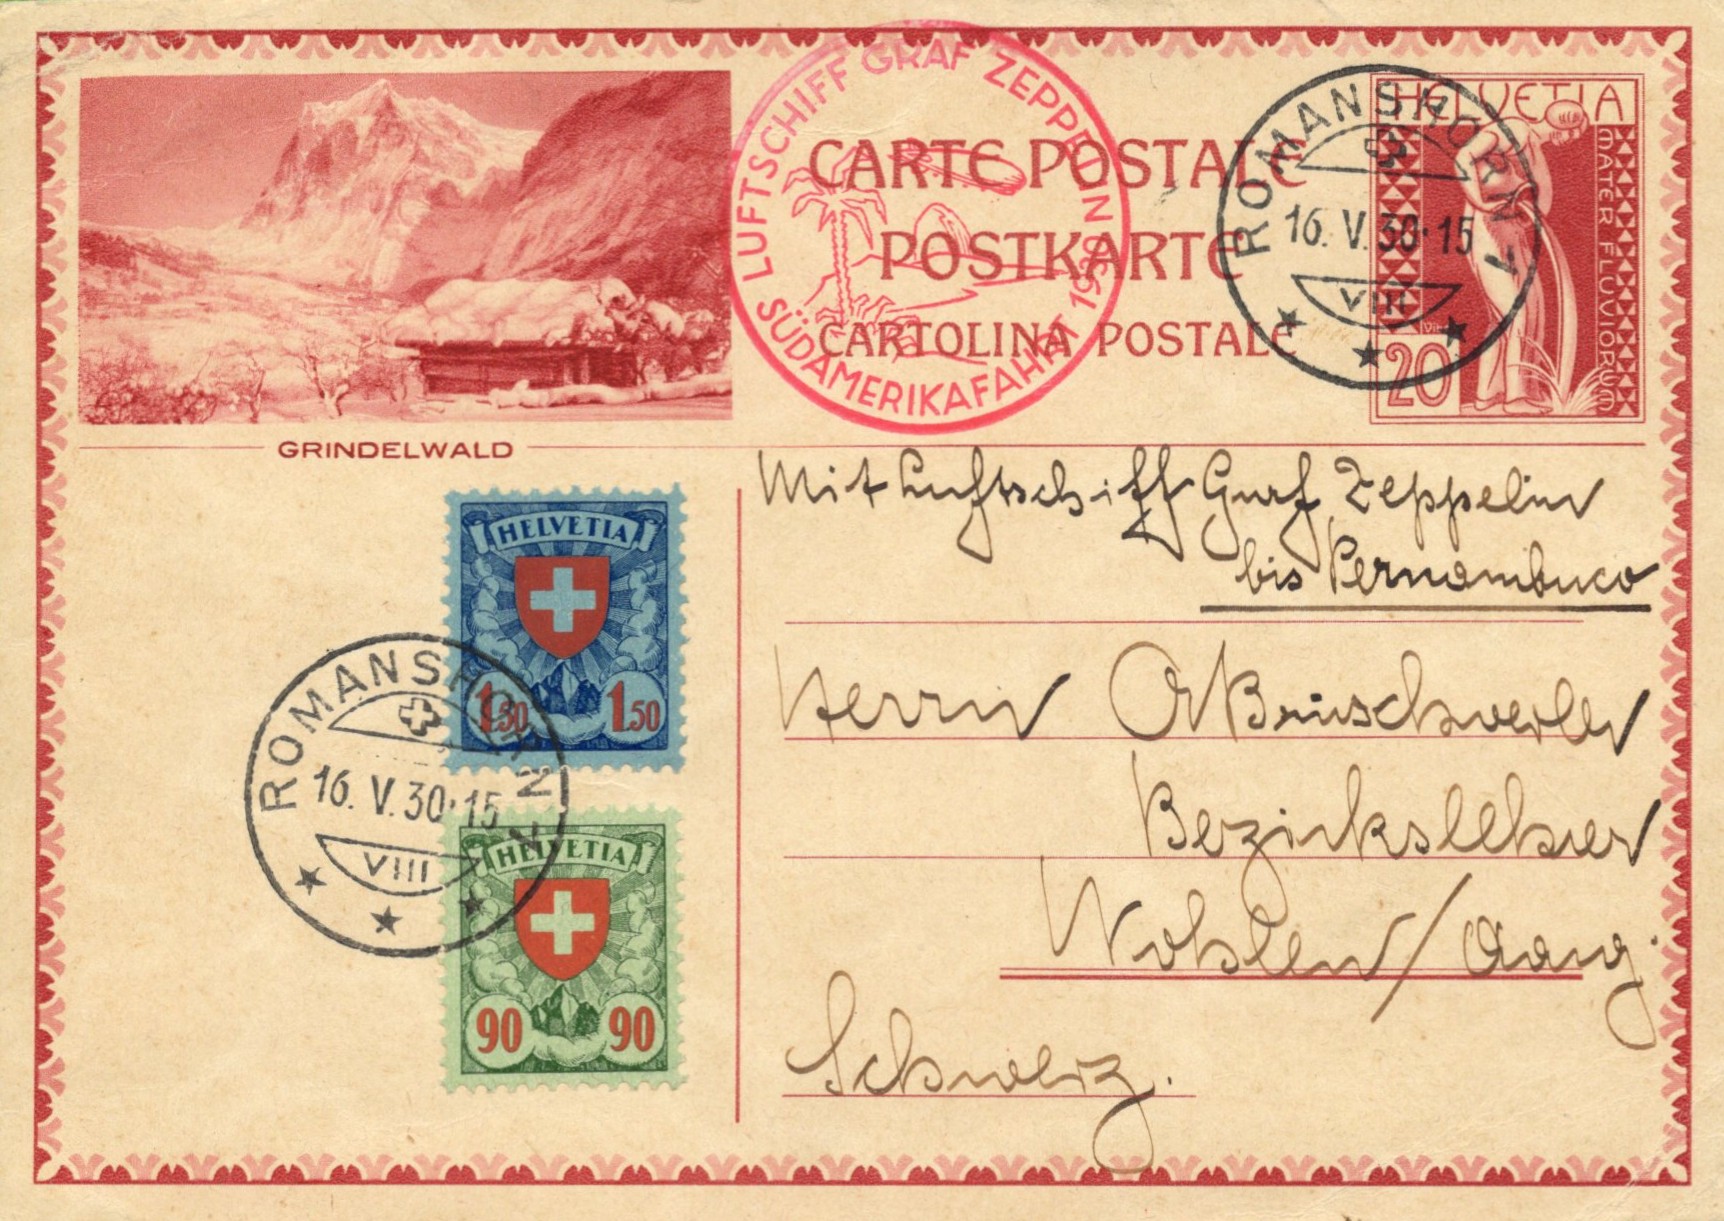 LUFTSCHIFF GRAF ZEPPELIN
SÜDAMERIKAFAHRT 1930
CARTE POSTALE
POSTKARTE
CARTOLINA POSTALE
ROMANSHORN 1
16. V. 30·15
VIII
HELVETIA
MATER FLUVIORUM
20
GRINDELWALD
Mit Luftschiff Graf Zeppelin
bis Pernambuco
HELVETIA
1.50 1.50
ROMANSHORN 1
16. V. 30·15
VIII
HELVETIA
90 90
Herrn
Bezirkslehrer
Wohlen/Aarg.
Schweiz.